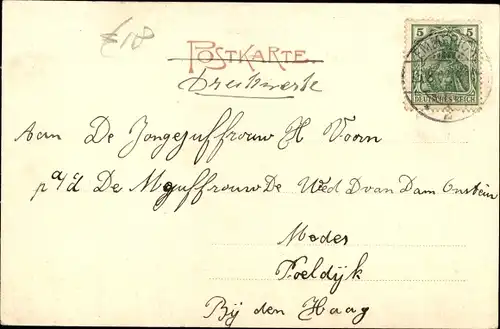 £18
POSTKARTE
5 5
DEUTSCHES REICH
Drukwerk
Aan De Jongejuffrouw H Voorn
p a/d De Mejuffrouw De Wed D van Dam
Modes
Poeldijk
Bij den Haag